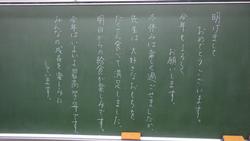 明けまして
おめでとうございます。
今年もよろしく
お願いします。
冬休みは寒く過ごせましたが
先生、大好きなおもちを
たくさん食べて満足しました。
明日からの給食が楽しみです。
今年はいよいよ最高学年です。
みんなの成長を楽しみに
しています。